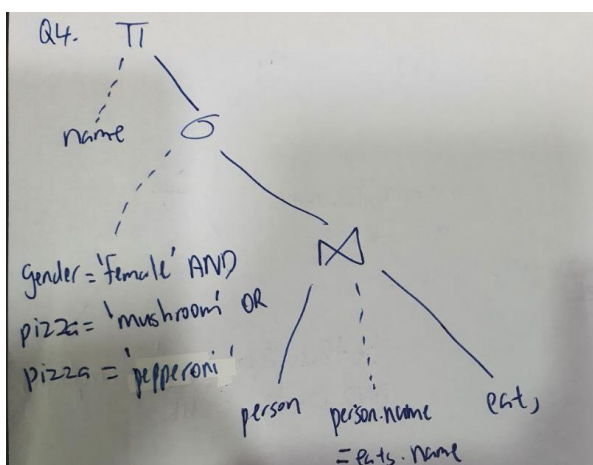 Q4. Π
name σ
gender = 'female' AND
pizza = 'mushroom' OR
pizza = 'pepperoni'
⋈
person person.name eats
= eats.name